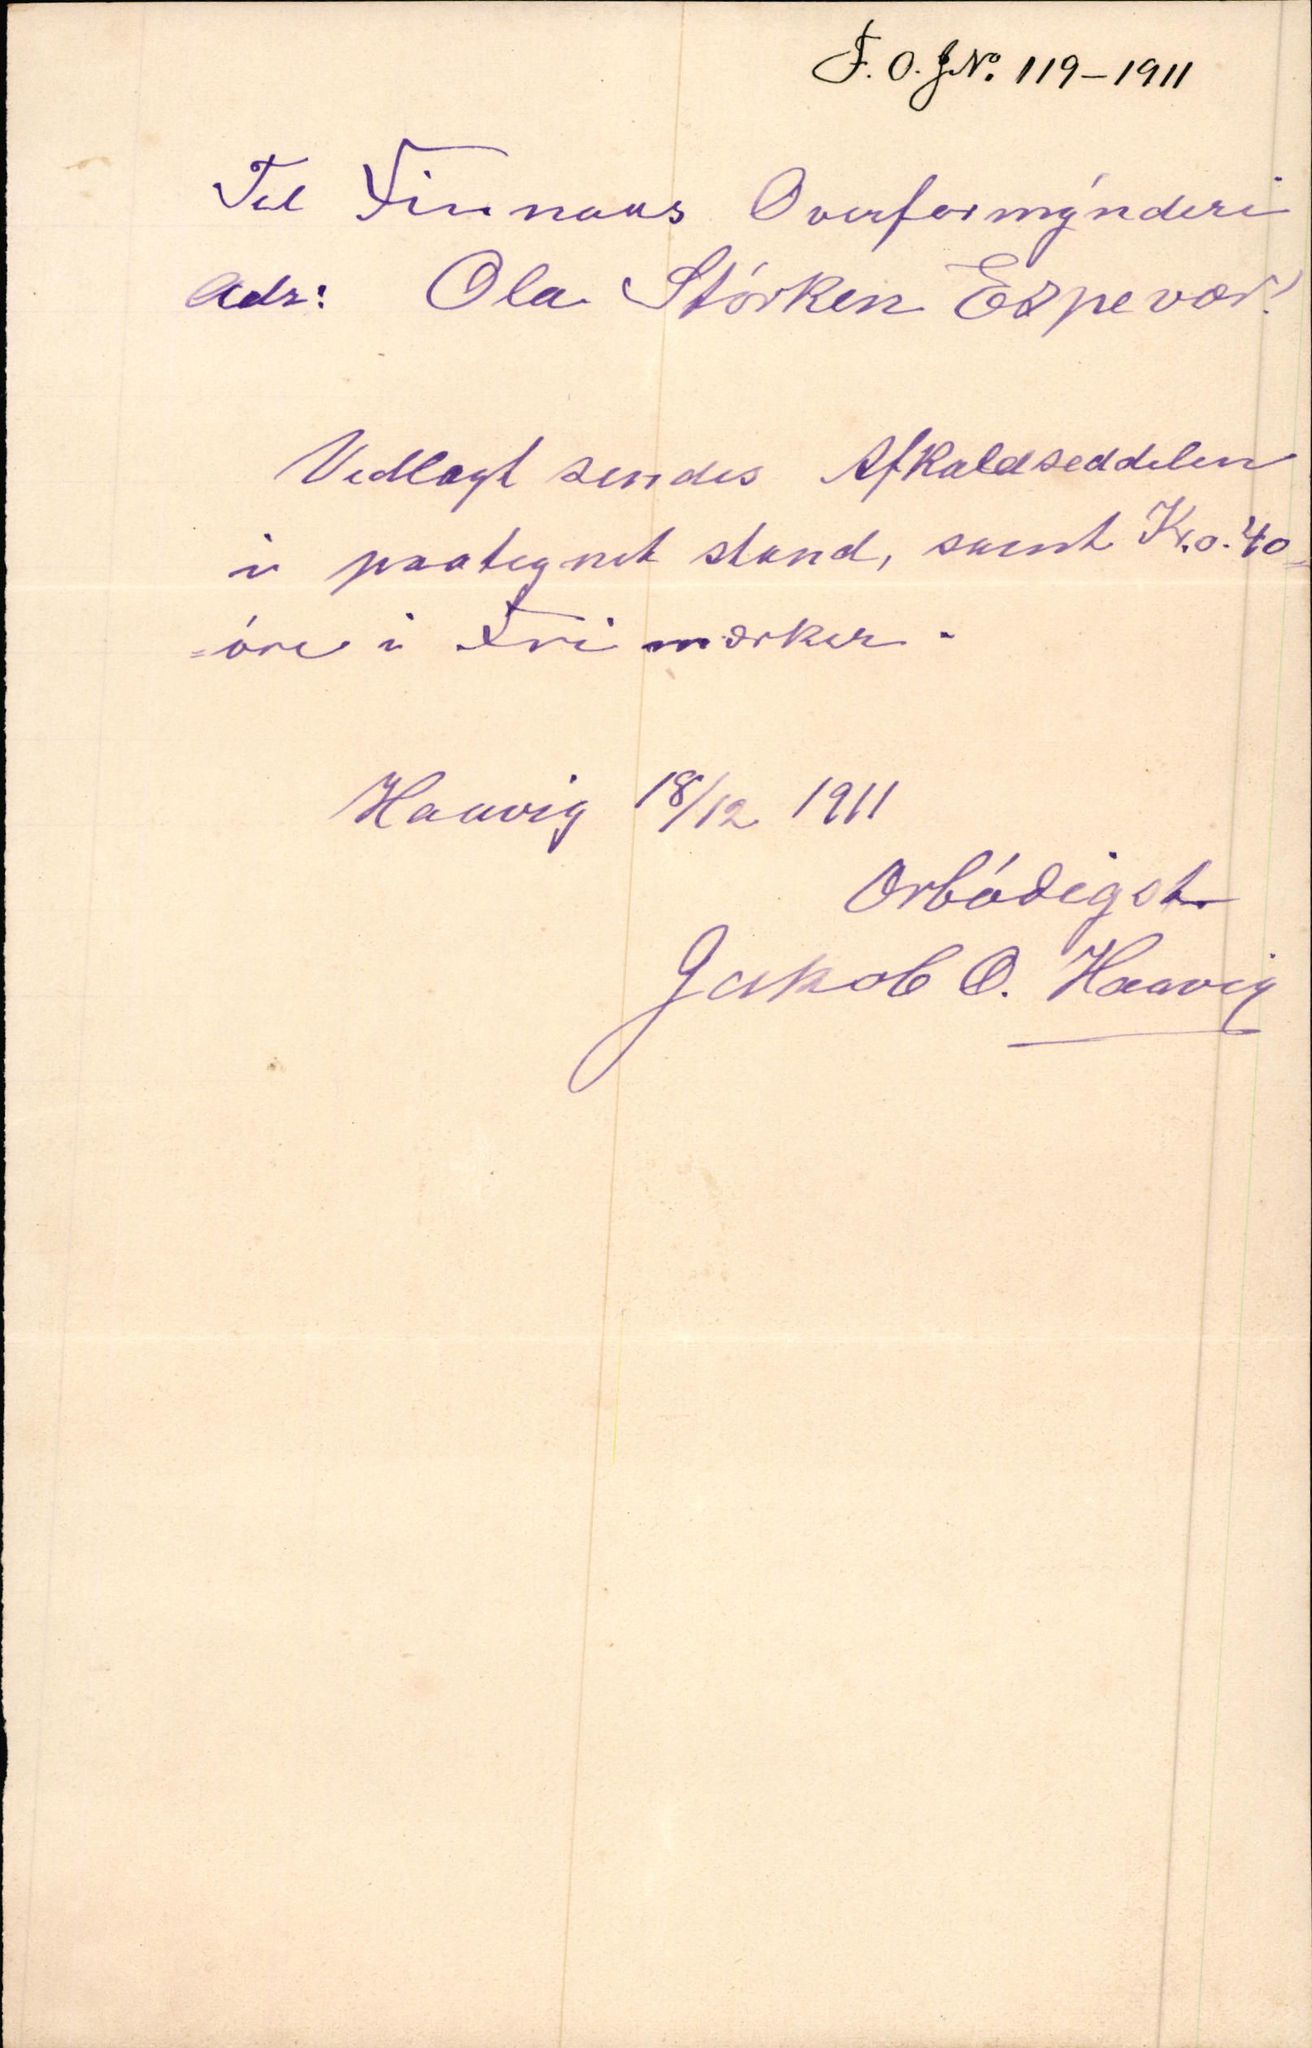 F. O. J No. 119-1911
Til Finnaas Overformynderi
Adr: Ola Størken Espevær!
Vedlagt sendes Afkaldseddelen
i paategnet stand, samt Kr. 0.40
=øre i Frimærker.
Haavig 18/12 1911
Ærbødigst
Jakob O. Haavig